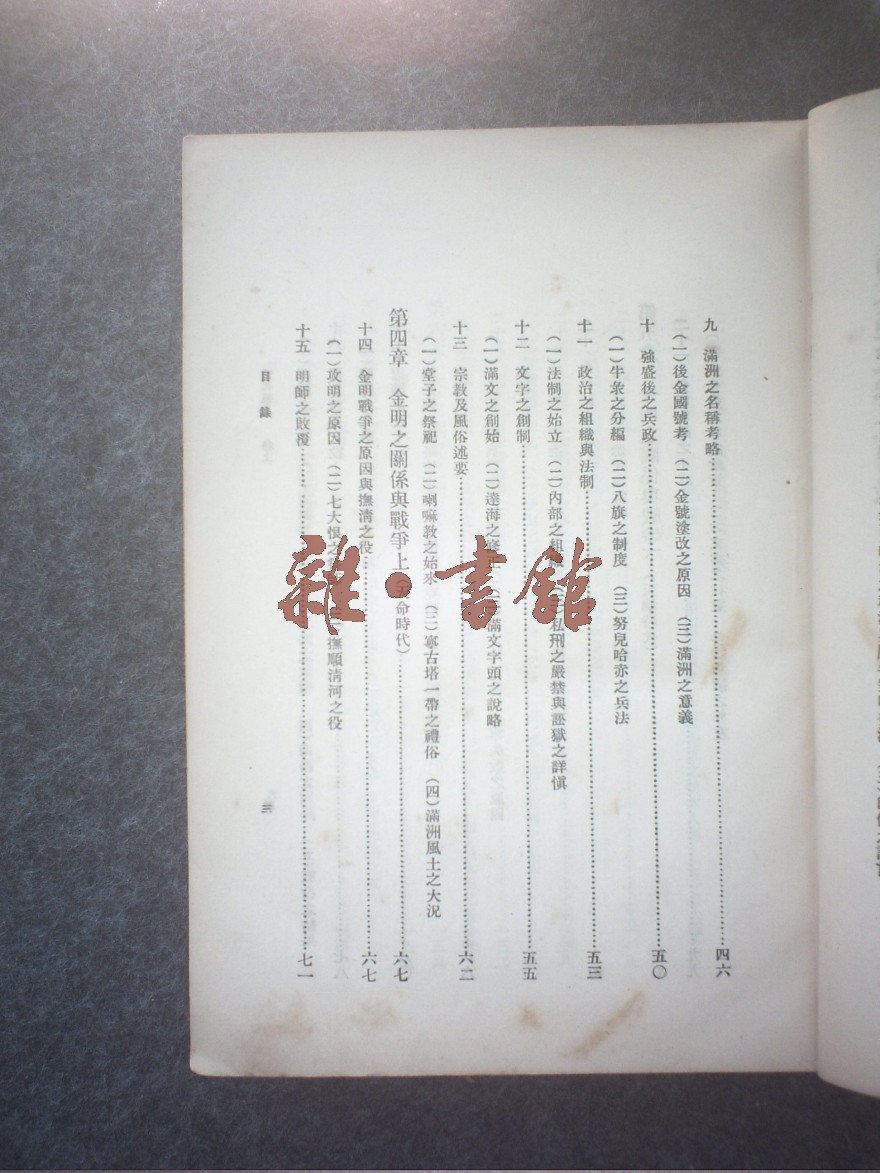 九 滿洲之名稱考略…………四六
(一)後金國號考 (二)金號塗改之原因 (三)滿洲之意義
十 強盛後之兵政…………五〇
(一)牛彔之分編 (二)八旗之制度 (三)努兒哈赤之兵法
十一 政治之組織與法制…………五三
(一)法制之始立 (二)內部之組織 私刑之嚴禁與訟獄之詳愼
十二 文字之創制…………五五
(一)滿文之創始 (二)達海之 滿文字頭之說略
十三 宗教及風俗述要…………六二
(一)堂子之祭祀 (二)喇嘛教之始來 (三)寧古塔一帶之禮俗 (四)滿洲風土之大況
第四章 金明之關係與戰爭上 天命時代)…………六七
十四 金明戰爭之原因與撫淸之役…………六七
(一)攻明之原因 (二)七大恨之 撫順淸河之役
十五 明師之敗覆…………七一
目錄
三
雜·書館